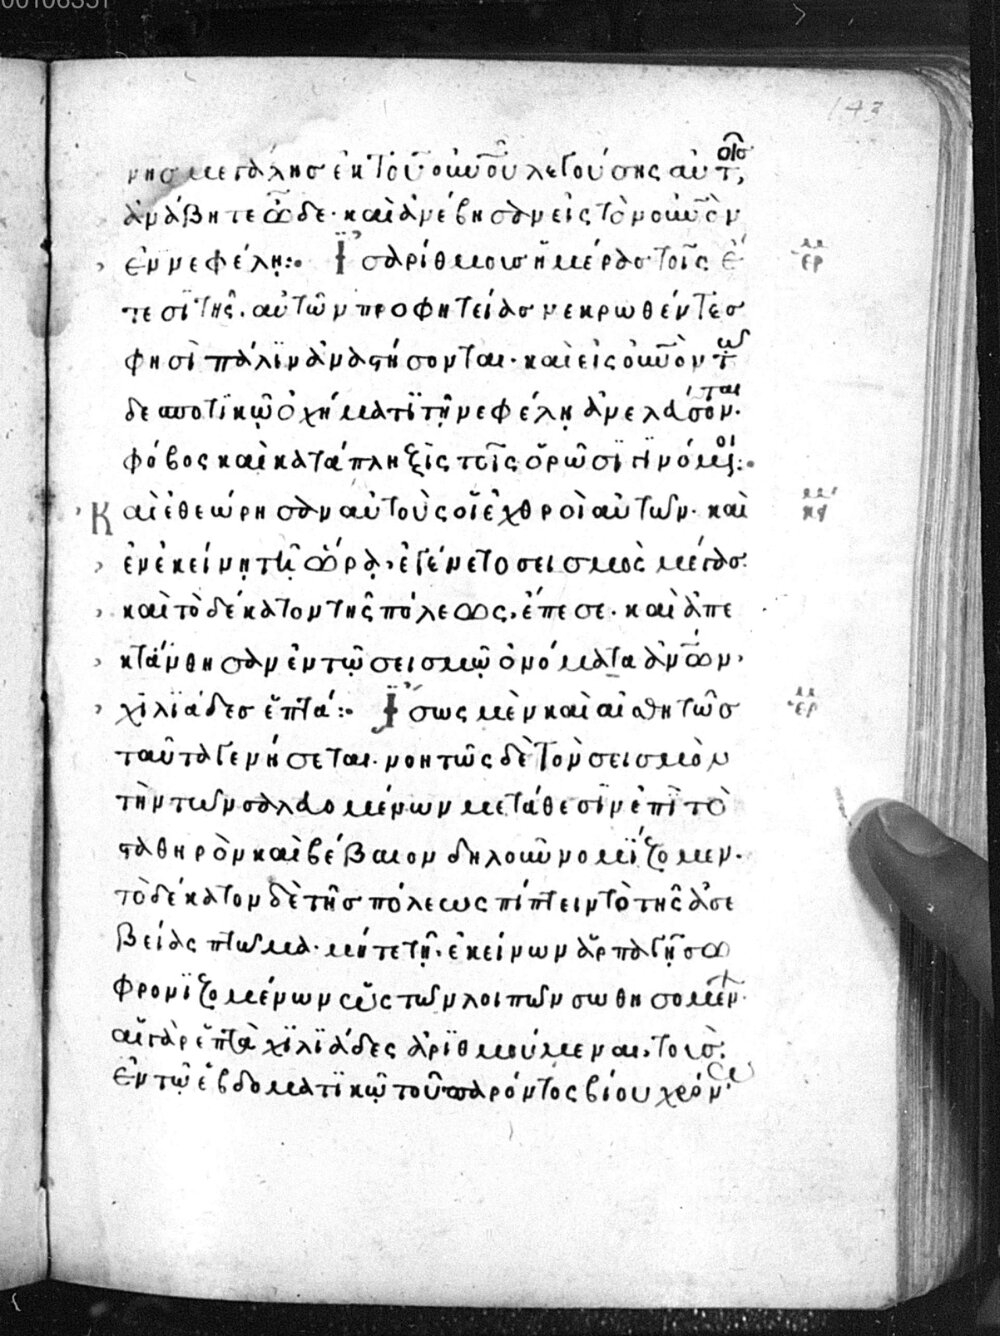 00106351
143
νησ μεγάλησ ἐκ τοῦ οὐνοῦ λεγούσης αὐτοῖσ,
ἀνάβητε ὧδε· καὶ ἀνέβησαν εἰς τὸν οὐνὸν
ἐν νεφέλῃ:· Ϊσαρίθμοισ ἡμέρασ τοῖς ἔ
τεσϊ τῆς αὐτῶν προφητείασ νεκρωθέντεσ
φησὶ πάλϊν ἀναστήσονται· καὶ εἰς οὐνὸν τῶ
δεσποτϊκῶ ὀχήματϊ τῆ νεφέλη ἀνελάσονται·
φόβος καὶ κατάπληξϊς τοῖς ὁρῶσϊ γϊνόμενοι:·
Καὶ ἐθεώρησαν αὐτοὺς οἱ ἐχθροὶ αὐτῶν· καὶ
ἐν ἐκείνῃ τῆ ὥρᾳ, ἐγένετο σεισμὸς μέγασ·
καὶ τὸ δέκατον τῆς πόλεως, ἔπεσε· καὶ ἀπε
κτάνθησαν ἐν τῷ σεισμῷ ὀνόματα ἀνων,
χϊλϊάδεσ ἑπτά:· Ϊσως μὲν καὶ αἰσθητῶσ
ταῦτα γενήσεται· νοητῶς δὲ τὸν σεισμὸν
τὴν τῶν σαλαομένων μετάθεσϊν ἐπϊ τὸ
σταθηρὸν καὶ βέβαιον δηλοῦν νομϊζομεν·
τὸ δέκατον δὲ τῆσ πόλεως πίπτειν τὸ τῆς ἀσε
βείας πτῶμα· μήτε τῆ ἐκείνων ἁρπαγῆ σω
φρονϊζομένων ὡς τῶν λοιπῶν σωθησομέν·
αἱ γὰρ ἑπτὰ χϊλϊάδες ἀρϊθμούμεναι, τοισ
ἐν τῷ ἑβδοματϊκῷ τοῦ παρόντος βίου χρόν
ερ
κει
ερ